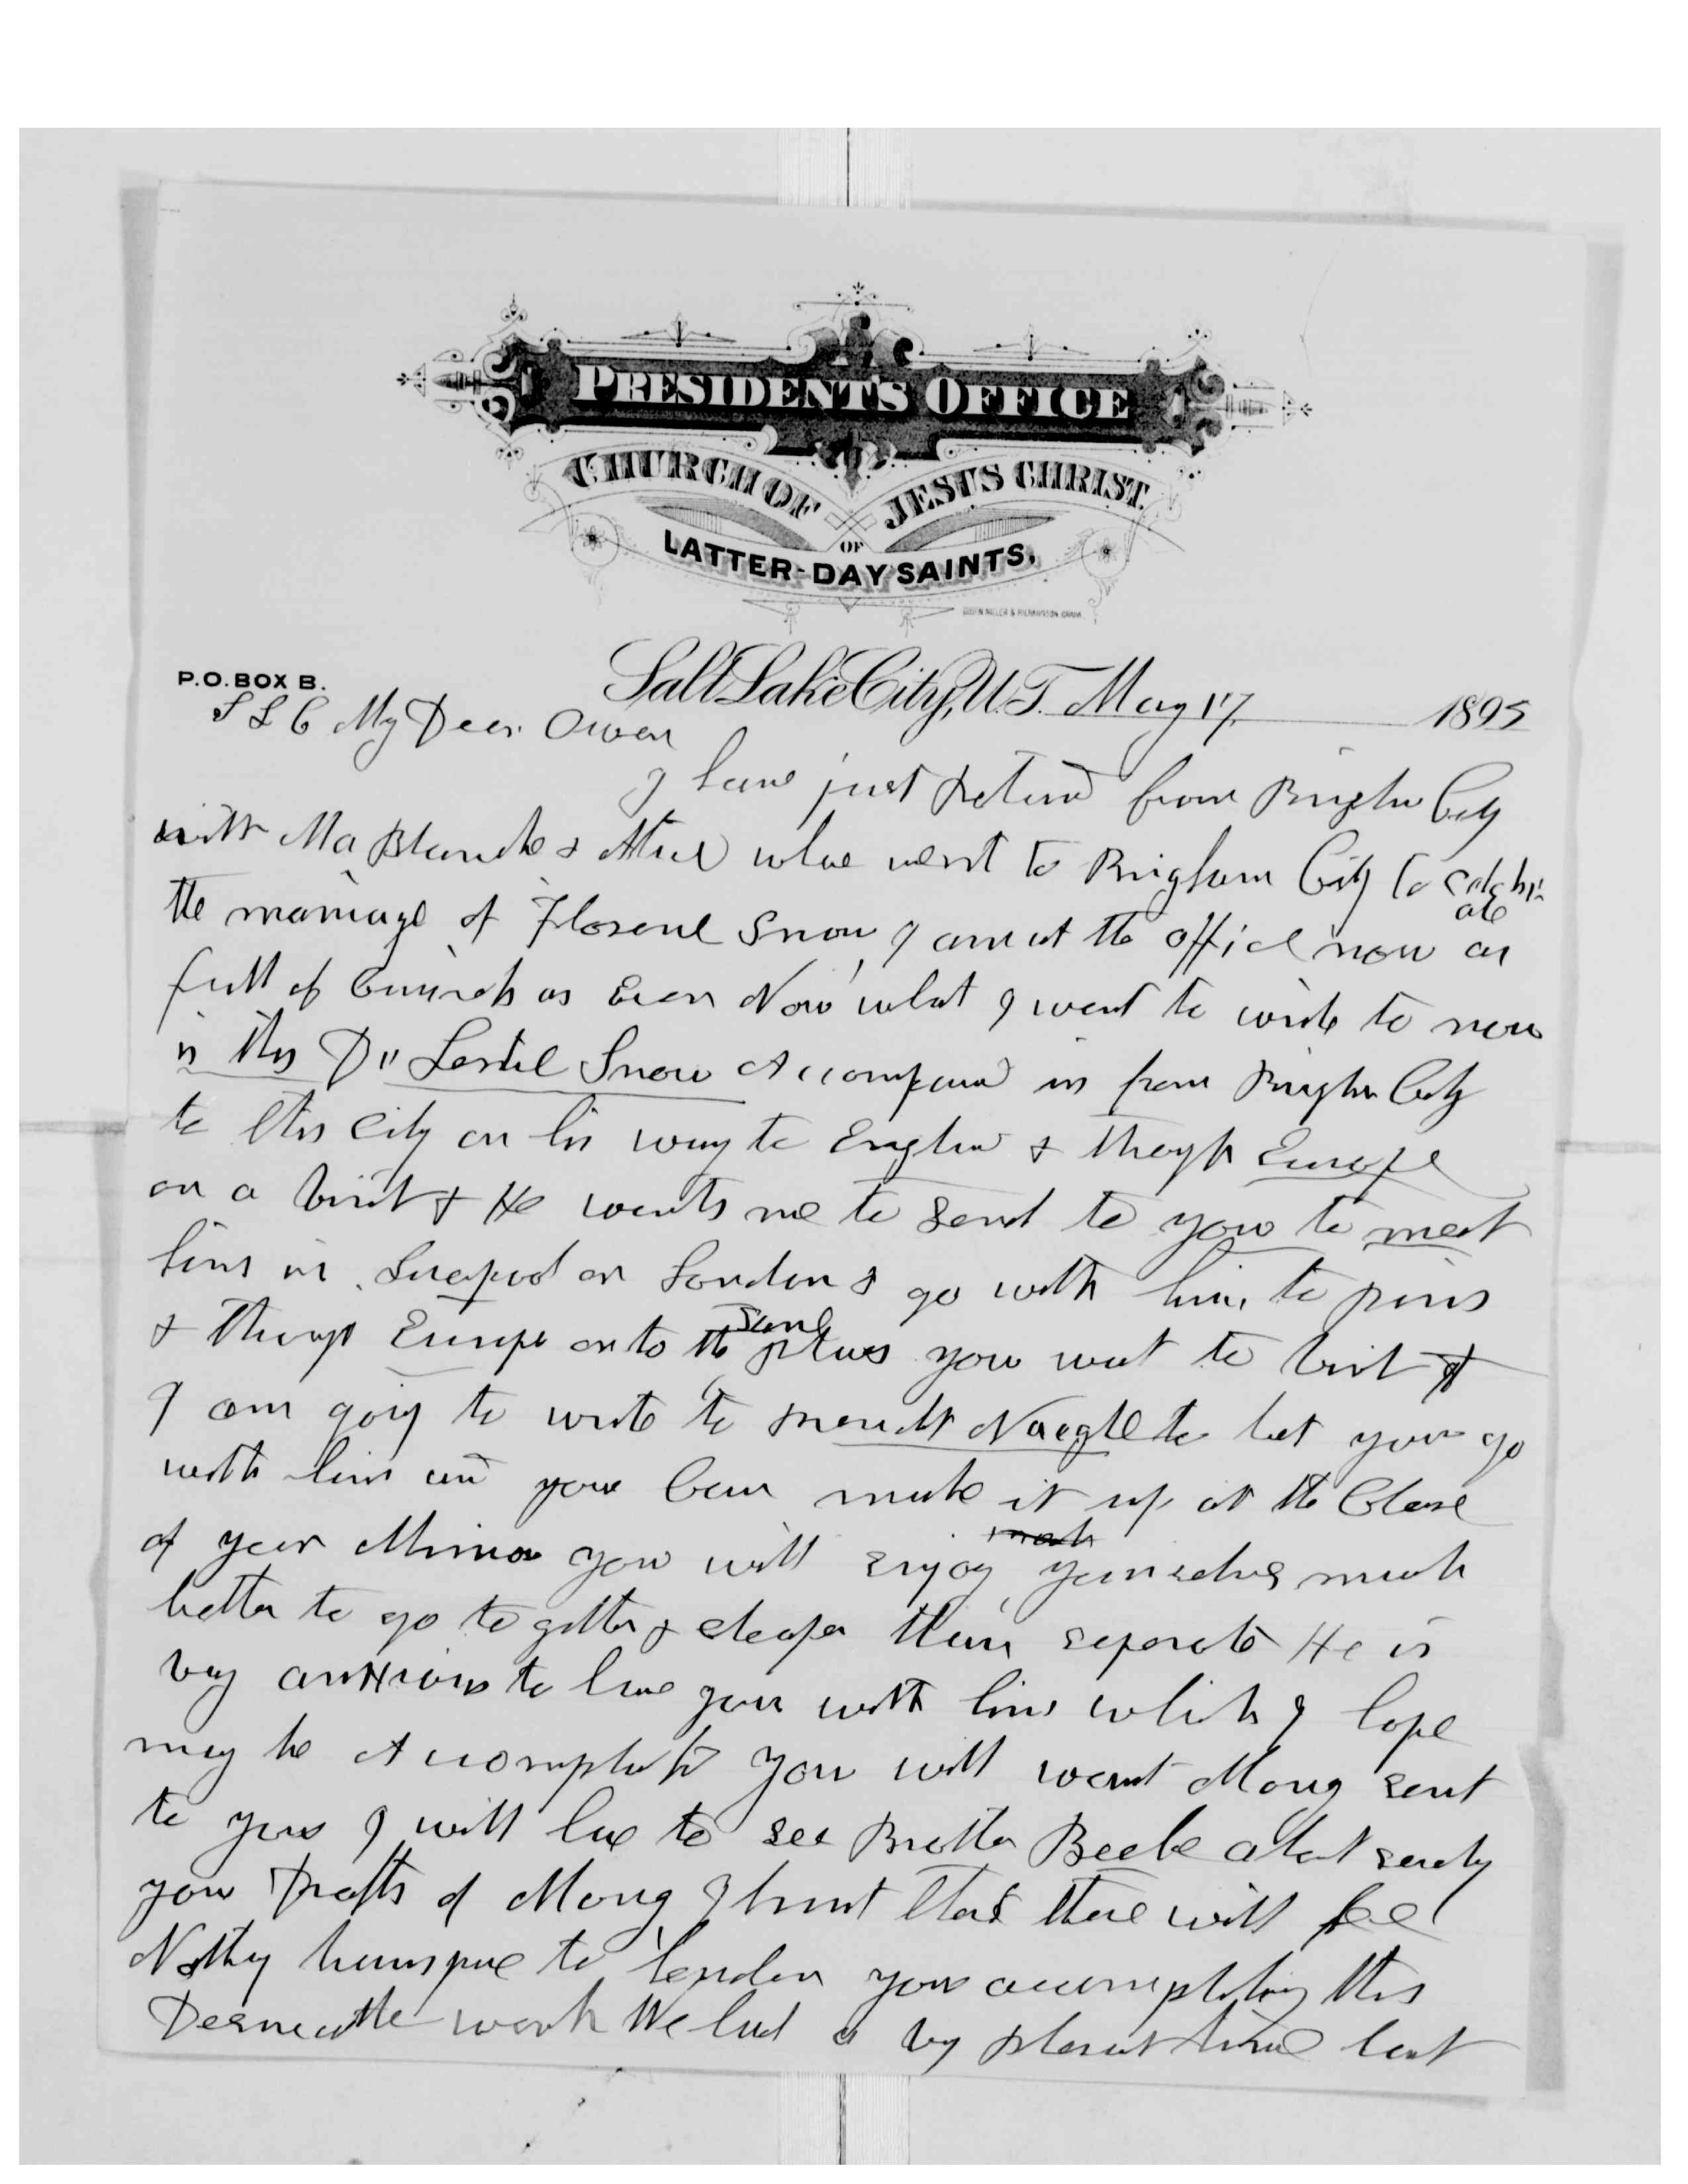 PRESIDENT'S OFFICE
CHURCH OF JESUS CHRIST
OF
LATTER-DAY SAINTS.
P.O. BOX B.
Salt Lake City, U.T. May 17 1895
S L C My Dear Owen
I have just returd from Brigham City
with Ma Blanche & Alice who went to Brigham City to celebr
ate
the marriage of Florence Snow I am at the office now as
full of buisness as Ever Now what I want to write to now
is this Dr Leslie Snow Accompand us from Brigham City
to this City on his way to England & through Europe
on a visit & He wants me to send to you to meet
him in Liverpool or London & go with him to paris
& through Europe on to the same places you want to visit &
I am going to write to Naegle to let you go
with him and you Can make it up at the Close
of your Mission you will enjoy much yourselves much
better to go to gether & cheaper than seperate He is
very anxious to have you with him which I hope
may be Accomplished You will want Mony sent
to you I will have to see Brother Beebe about sendig
you Drafts of Mony I trust that there will be
Nothing transpire to hender you accomplishing this
Desireable work We had a vey plesant time last